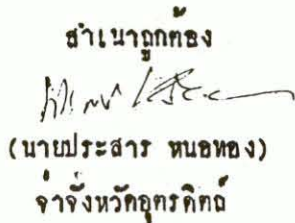 สำเนาถูกต้อง
(นายประสาร หนอทอง)
จ่าจังหวัดอุตรดิตถ์